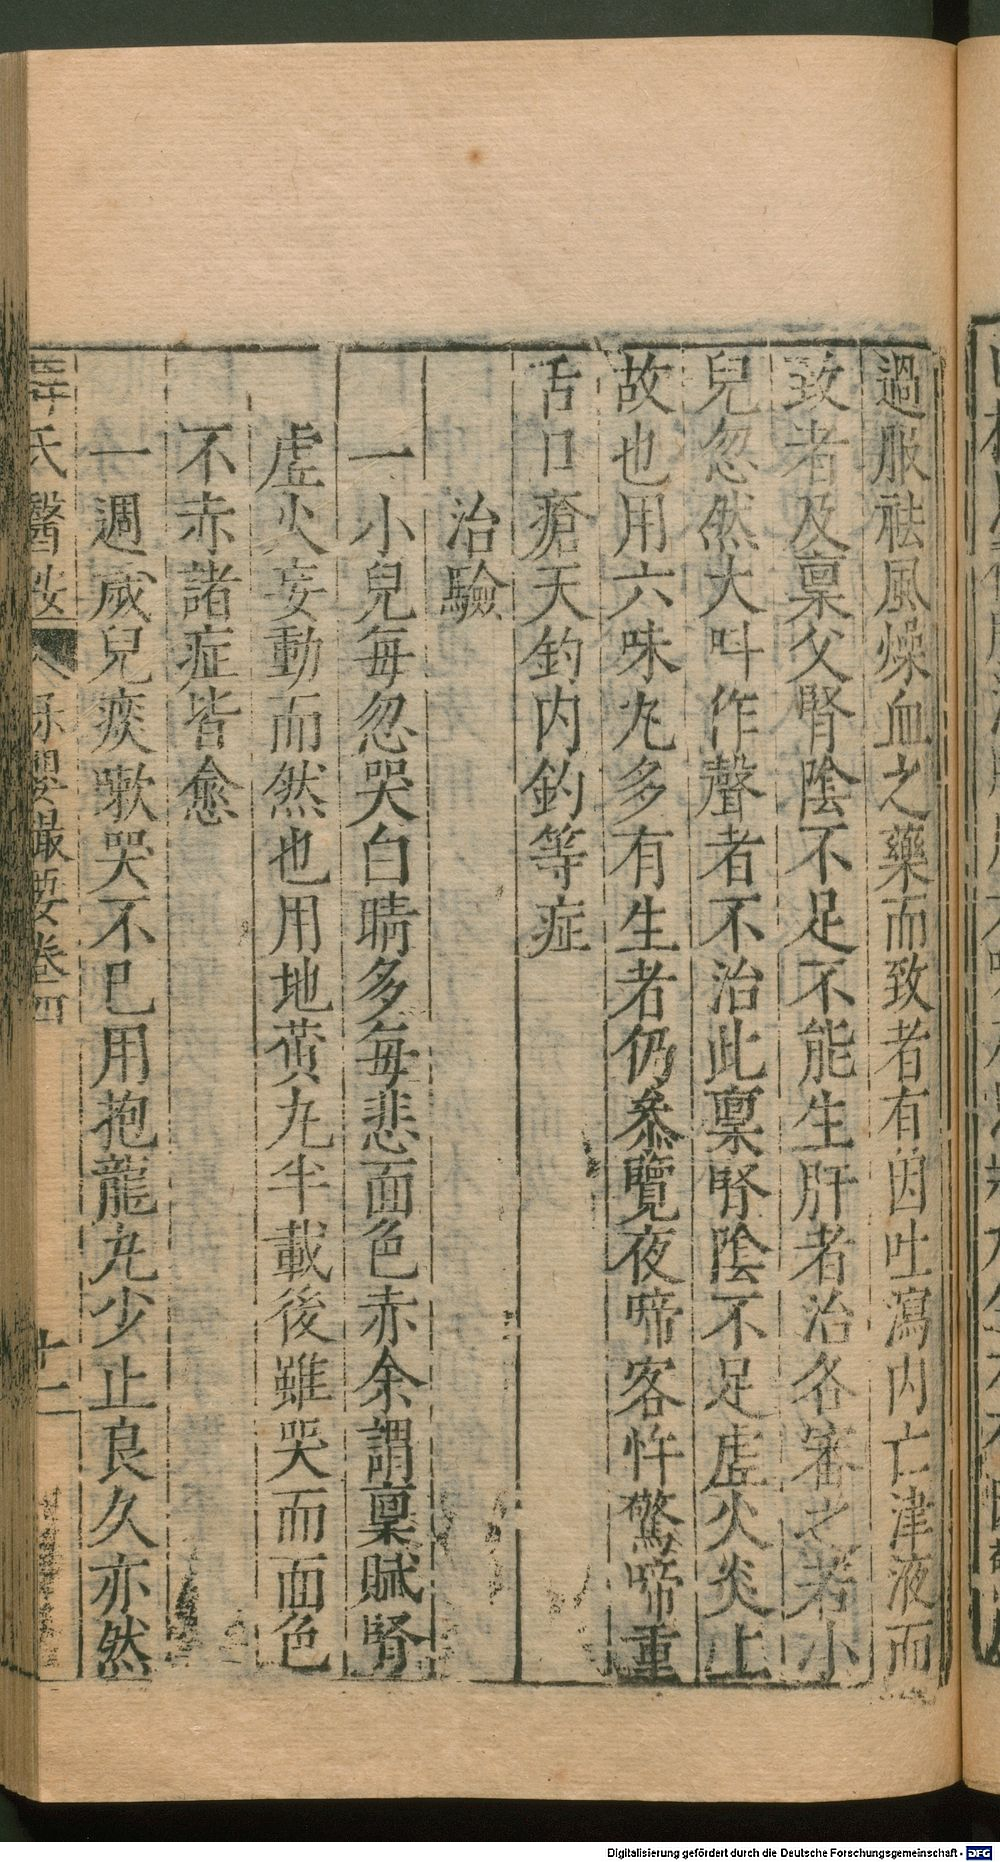 過服祛風燥血之藥而致者有因吐瀉内亡津液而
致者及稟父腎陰不足不能生肝者治各審之若小
兒忽然大呌作聲者不治此稟腎陰不足虛火炎上
故也用六味丸多有生者仍叅覽夜啼客忤驚啼重
舌口瘡天釣内釣等症
治驗
一小兒每忽哭白睛多每悲面色赤余謂稟賦腎
虛火妄動而然也用地黄丸半載後雖哭而面色
不赤諸症皆愈
一週歲兒痰嗽哭不已用抱龍丸少止良久亦然
氏醫 保嬰撮要卷四 十一
Digitalisierung gefördert durch die Deutsche Forschungsgemeinschaft - DFG